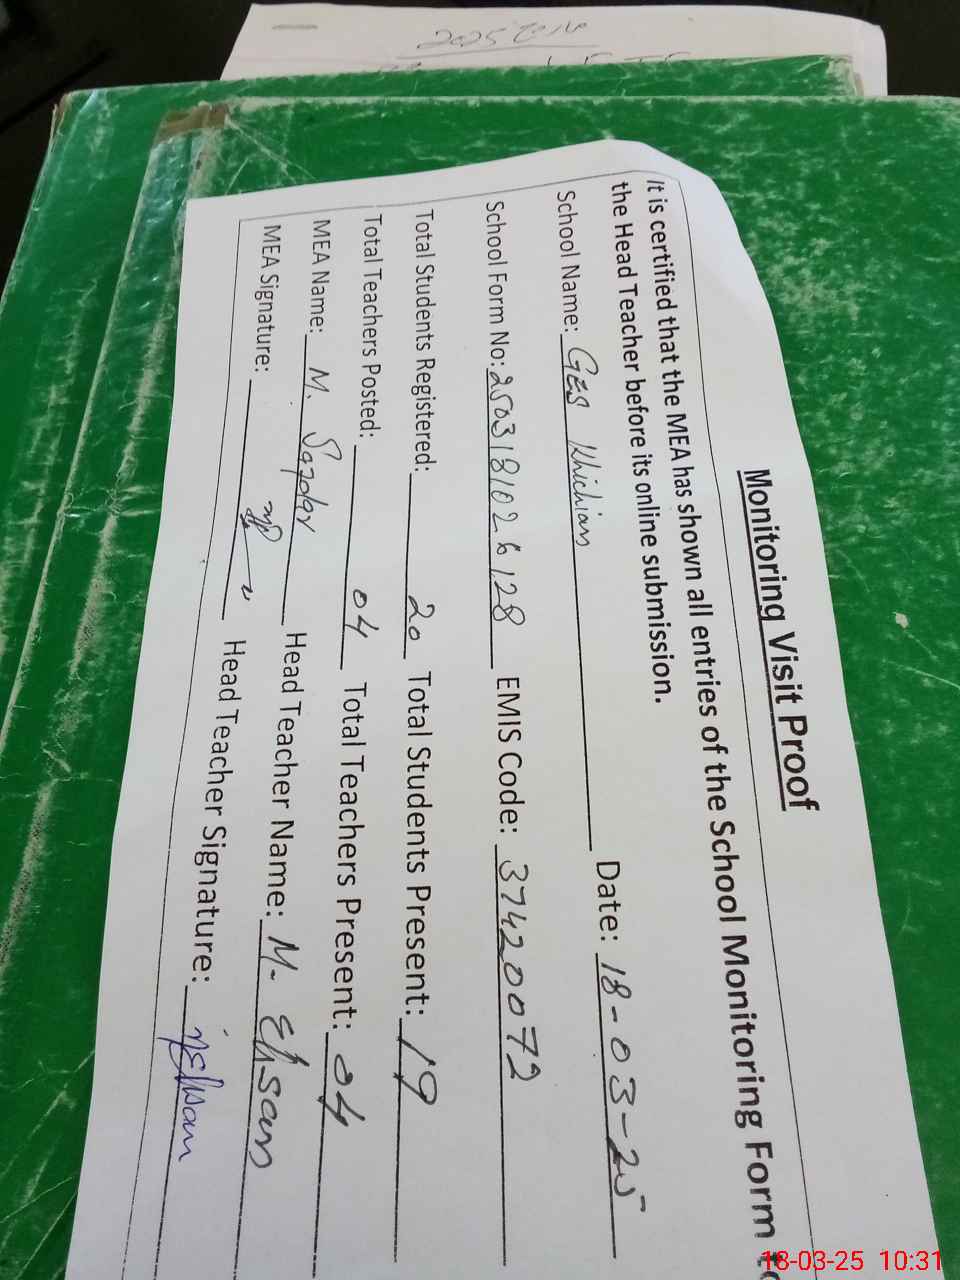 Monitoring Visit Proof
It is certified that the MEA has shown all entries of the School Monitoring Form to
the Head Teacher before its online submission.
School Name: GES Khichian Date: 18-03-25
School Form No: 2503181026128 EMIS Code: 37420072
Total Students Registered: 20 Total Students Present: 19
Total Teachers Posted: 04 Total Teachers Present: 04
MEA Name: M. Safdar Head Teacher Name: M. Ehsan
MEA Signature: Head Teacher Signature: Ehsan
18-03-25 10:31